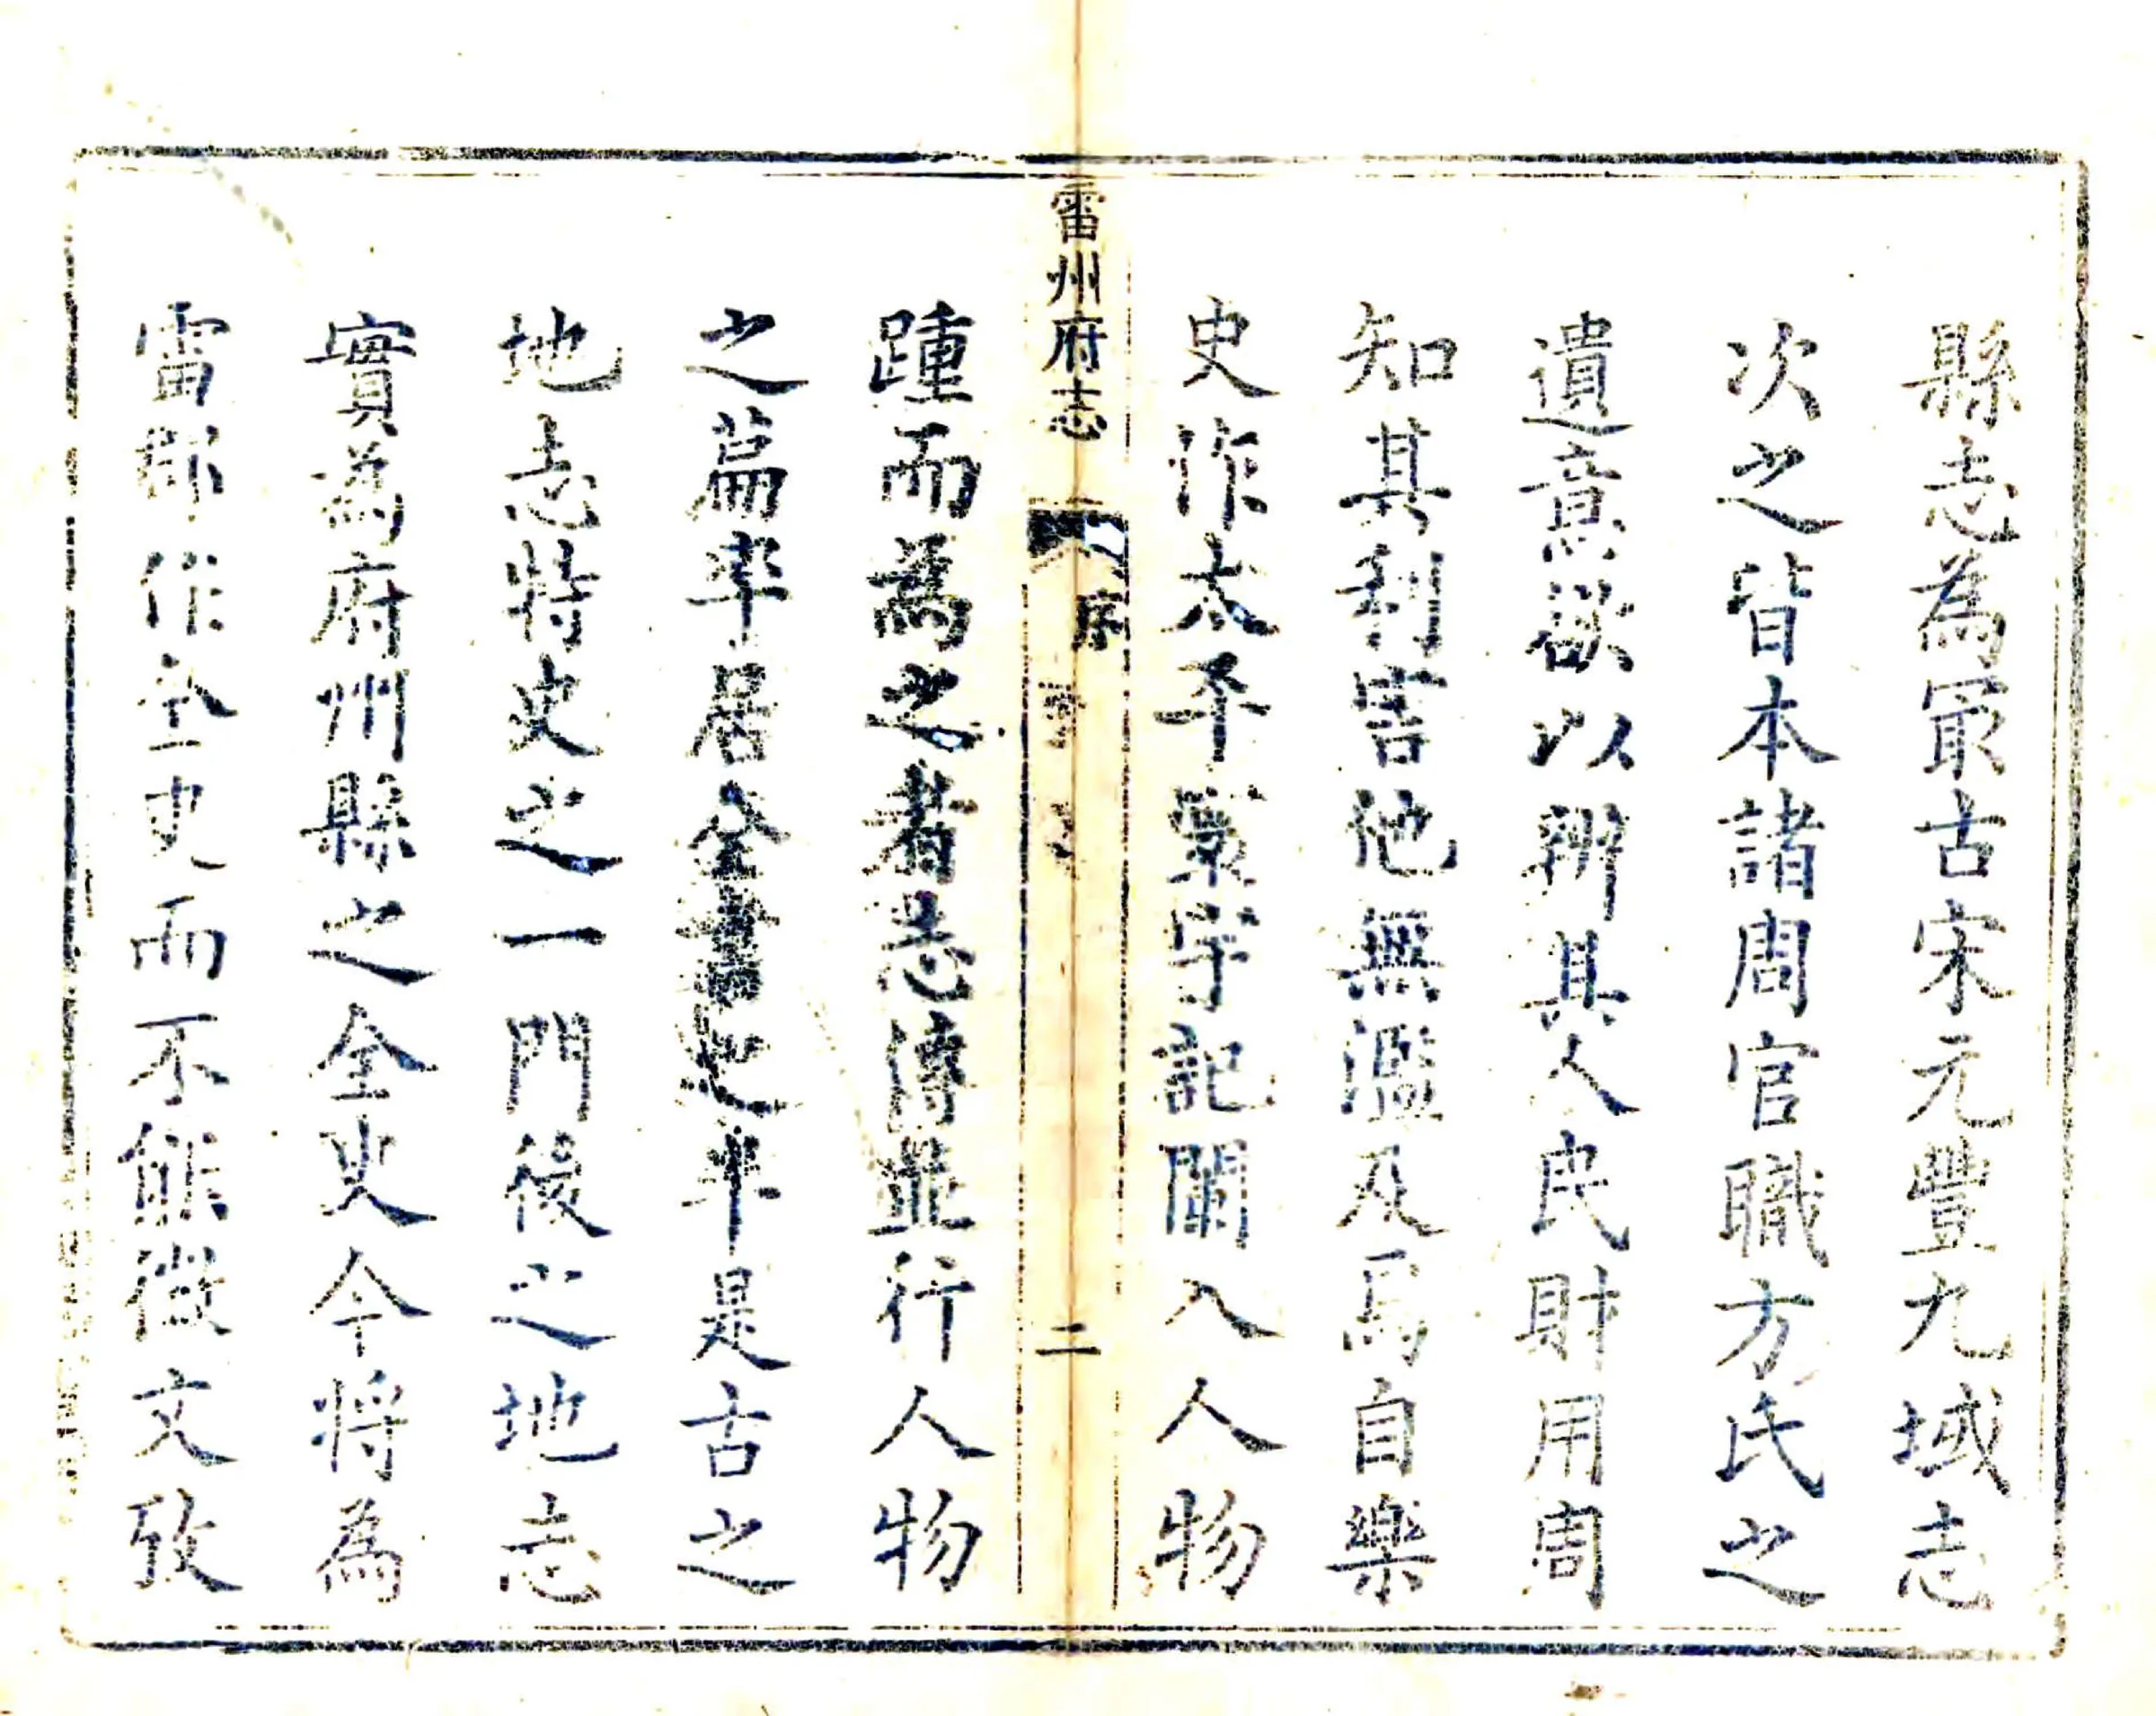 縣志為冣古宋元豐九域志
次之皆本諸周官職方氏之
遺意欲以辨其人民財用周
知其利害他無濫及焉自樂
史作太平寰宇記闌入人物
雷州府志
序
二
踵而為之者志傳並行人物
之篇率居全書之半是古之
地志特史之一門後之地志
實為府州縣之全史今將為
雷郡作全史而不能徵文攷